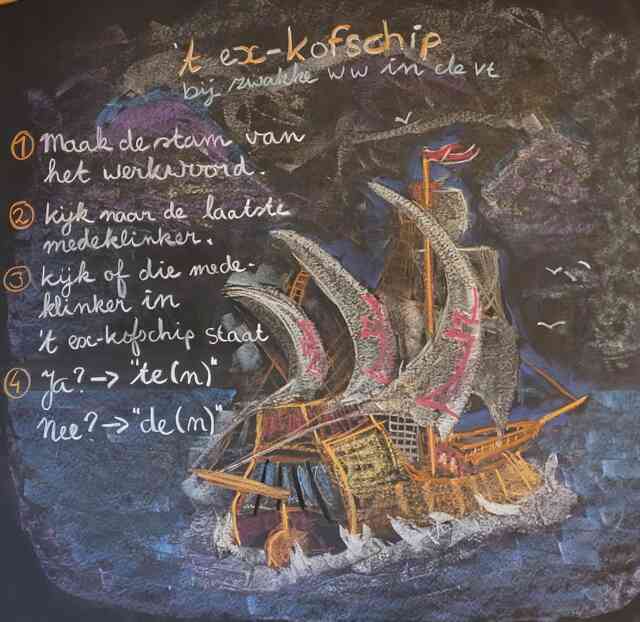 't ex-kofschip
bij zwakke ww in de vt
1 Maak de stam van
het werkwoord.
2 kijk naar de laatste
medeklinker.
3 kijk of die mede-
klinker in
't ex-kofschip staat
4 Ja? -> "te(n)"
Nee? -> "de(n)"